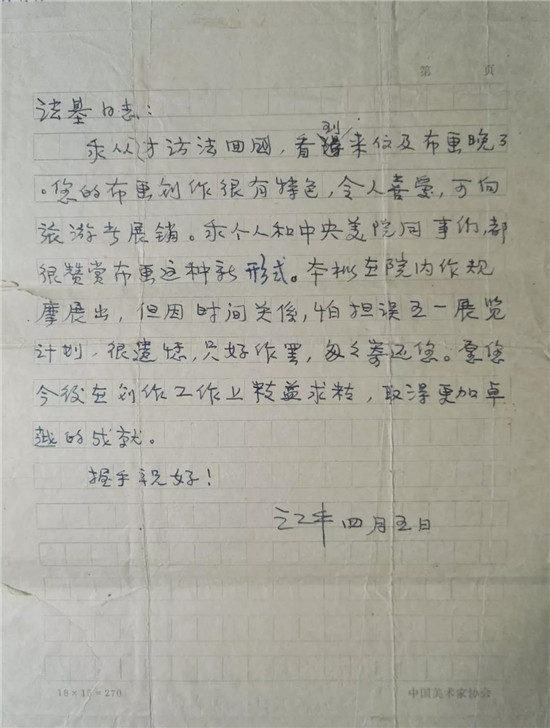 第 页
法基同志：
我从才访法回国，看到来信及布画晚了
。您的布画创作很有特色，令人喜爱，可向
旅游者展销。我个人和中央美院同事们，都
很赞赏布画这种新形式。本拟在院内作观
摩展出，但因时间关係，怕担误五一展览
计划，很遗憾，只好作罢，匆匆寄还您。愿您
今后在创作工作上精益求精，取得更加卓
越的成就。
握手祝好！
江丰 四月五日
18×15=270
中国美术家协会